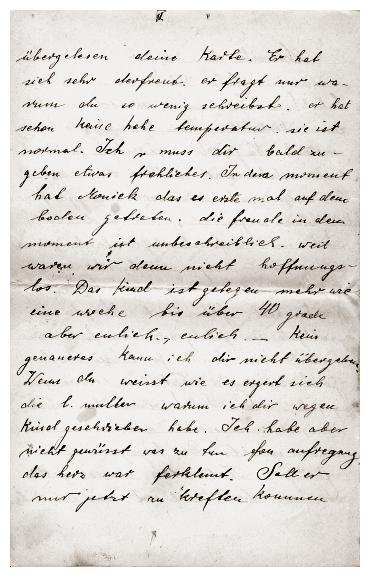 II
übergelesen deine Karte. Er hat
sich sehr derfreut. er fragt nur wa-
rum du so wenig schreibst. er hat
schon keise hohe temperatur. sie ist
normal. Ich muss dir bald zu-
geben etwas frohliches. In dem moment
hat Moniek das es erste mal auf dem
boden getreten. die freude in dem
moment ist unbeschreiblich. weil
waren wir denn nicht hoffnungs-
los. Das kind ist gelegen mehr wie
eine woche bis über 40 grade
aber enlich., enlich. — Kein
genaueres kann ich dir nicht übergeben
Wenn du weisst wie es ergert sich
die l. mutter warum ich dir wegen
Kind geschrieben habe. Ich habe aber
nicht gewüsst was zu tun fon aufregung
das herz war ferklemt. Soll er
nur jetzt zu kreften kommen